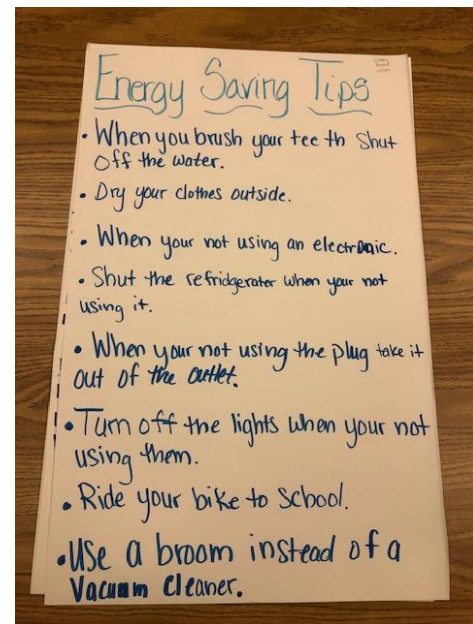 Energy Saving Tips
• When you brush your tee th Shut
off the water.
• Dry your clothes outside.
• When your not using an electronic.
• Shut the refridgerater when your not
using it.
• When your not using the plug take it
out of the outlet.
• Turn off the lights when your not
using them.
• Ride your bike to School.
• Use a broom instead of a
Vacuum Cleaner.